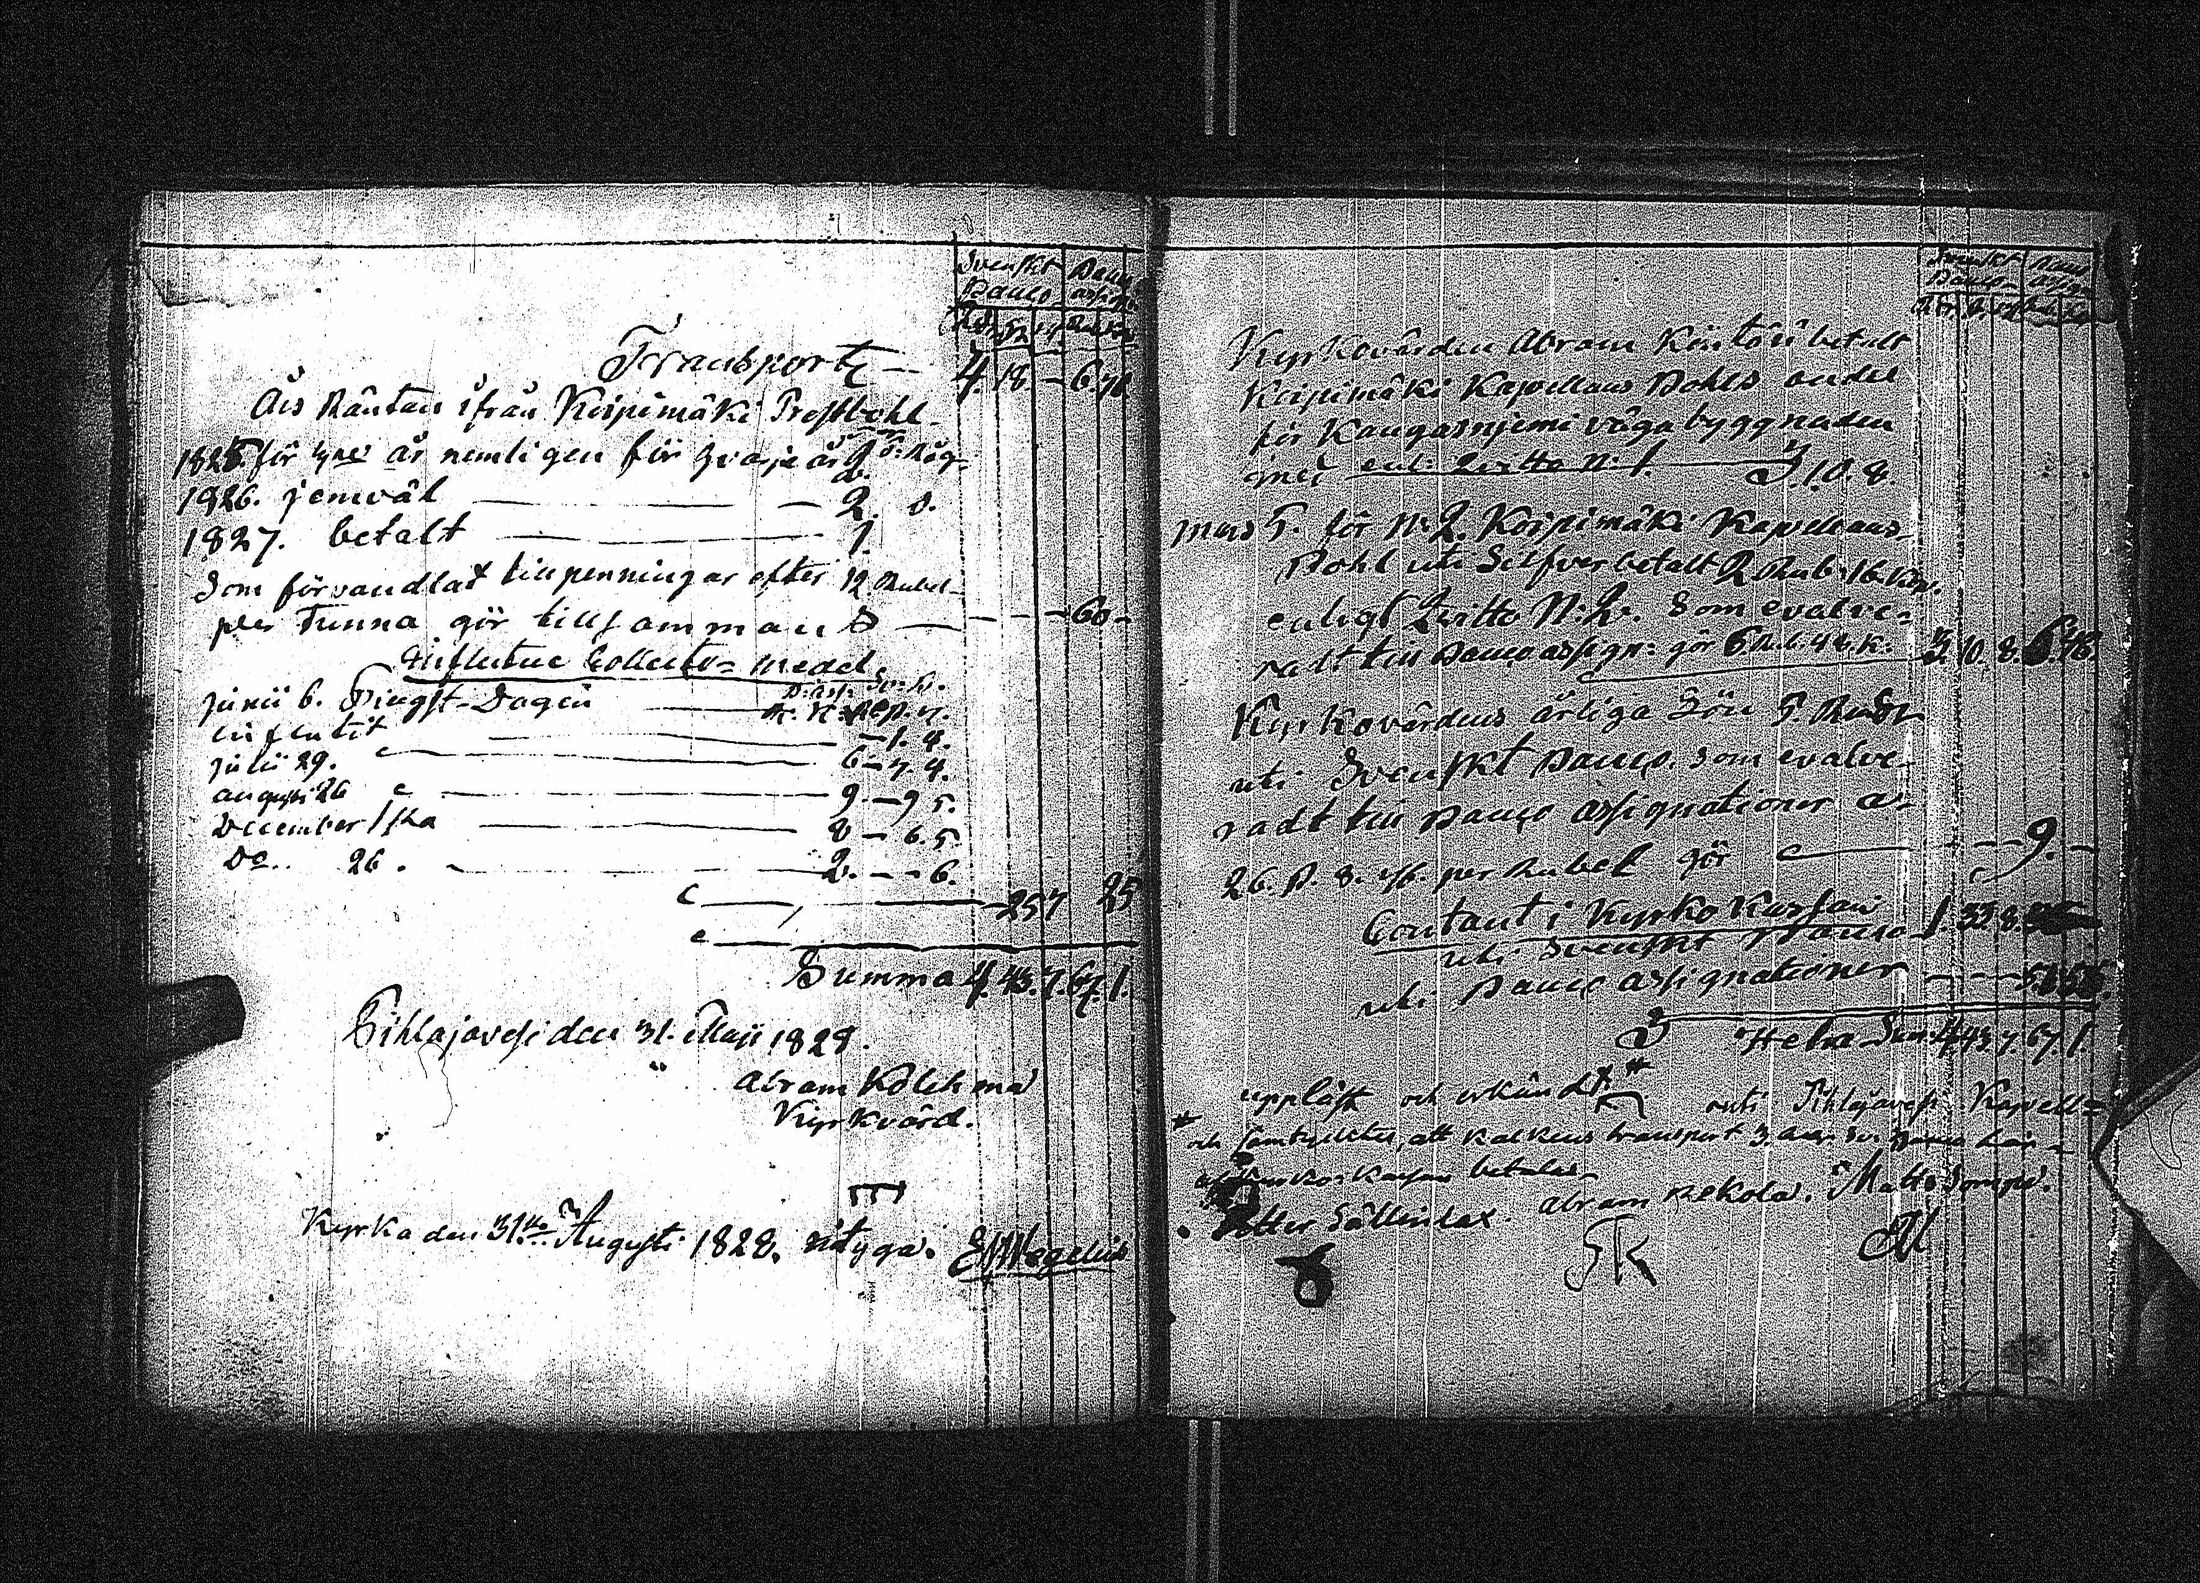 Svenskt Banco
Banco assign:
Transport — 4. 18 — 6. 76
Års Räntan ifrån Koipimäki Prestbohl
1825 för tvne år nemligen för hvarje år
1826. jemväl — 2.
1827. betalt — 1.
Som förvandlat till penningar efter 12 Rubel
per Tunna gör tillsammans — 60 —
Influtne Collects-medel
Junii 6. Pingst-Dagen
influtit — 1. 4.
Julii 29. — 6 — 7. 4.
augusti 26 — 9. — 9 5.
December 1sta — 8 — 6. 5.
Do.. 26. — 2. — — 6.
— 25 7 25
Summa 4. 43. 7. 67. 1.
Pihlajavesi den 31. Maji 1828.
Abram Kolehma
Kyrkvärd.
Kyrka den 31 Augusti 1828. intyga.
Wegelius
Svenskt Banco
Banco assign
Kyrkovärden Abram betalt
Koipimäki Kapellans Bohls andel
för Kangasnjemi väga byggnaden
med enl: Qvitto N: 1. — 3. 10. 8.
Mars 5. för N: 2. Koipimäki Kapellans
Bohl uti Silfver betalt 2 Rub. 16. Kop.
enligt Qvitto N: 2. Som evalve-
radt till Banco assign: gör 6. Rub. 48. K. 3. 10. 8. 6. 48.
Kyrkovärdens årliga Lön 5. Rubl
uti Svenskt Banco som evalve-
radt till Banco assignationer a
26. B. 8. rf. per Rubel gör — 9. —
Contant i Kyrko Kassan
uti Svenskt Banco 1. 33. 8.
uti Banco assignationer
Hela Sum. 4. 43. 7. 67. 1.
uppläst och erkändt * uti Pihlajavesi Kapell-
* och samtyckte, att kalkens transport
Kassan betalas
Petter Sällinlax. Abram Rekola. Matts